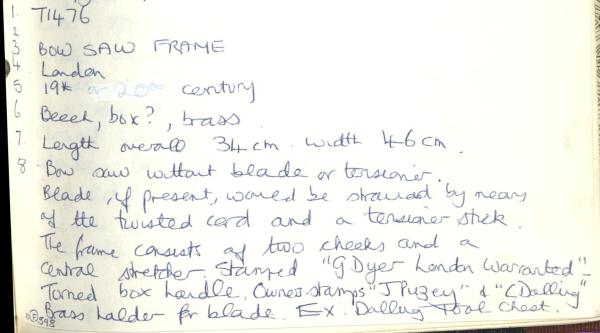 1. T1476
2
3 BOW SAW FRAME
4. London
5 19th or 20th century
6 Beech, box?, brass.
7. Length overall 34cm. width 46cm.
8. Bow saw without blade or tensioner.
Blade, if present, would be strained by means
of the twisted cord and a tensioner stick.
The frame consists of two cheeks and a
central stretcher. Stamped "G Dyer London Warranted"-
Turned box handle. Owners stamps "J Puzey" & "C Dalling"
Brass holder for blade. Ex. Dalling Tool Chest.